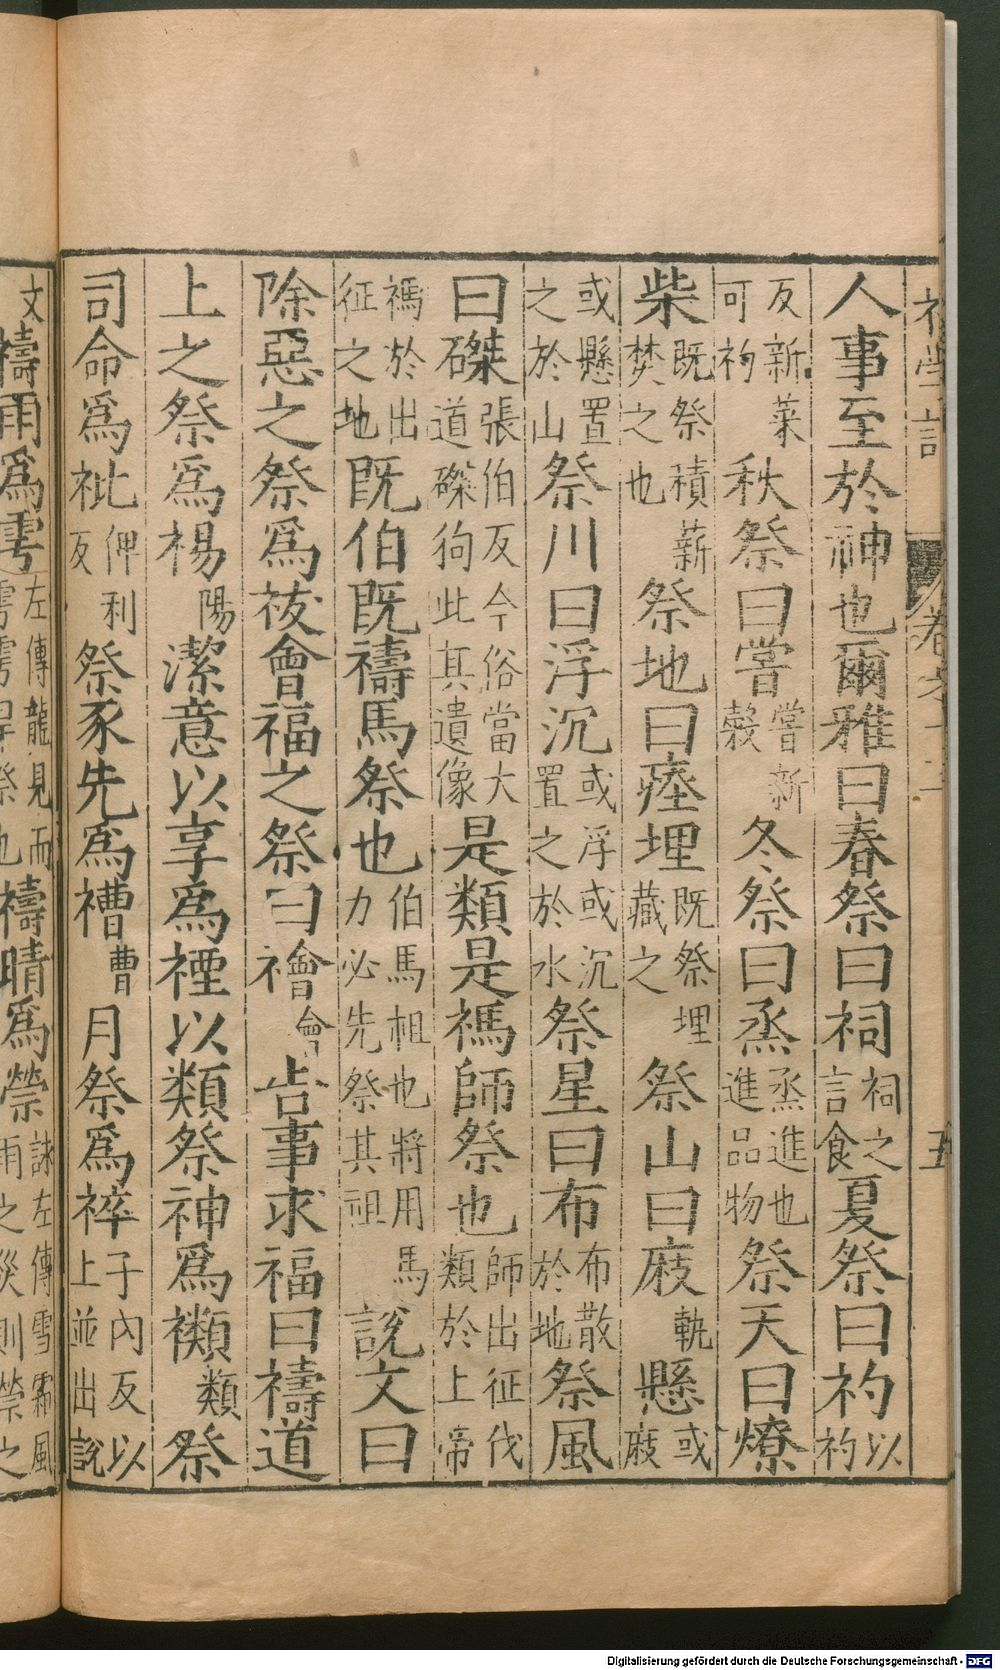 人事至於神也爾雅曰春祭曰祠祠之言食夏祭曰礿以礿
反新菜可礿秋祭曰嘗嘗新穀冬祭曰烝烝進也進品物祭天曰燎
柴既祭積薪焚之也祭地曰瘞埋既祭埋藏之祭山曰庪軌懸或庪
或懸置之於山祭川曰浮沉或浮或沉置之於水祭星曰布布散於地祭風
曰磔張伯反今俗當大道磔狥此其遺像是類是禡師祭也師出征伐類於上帝
禡於出征之地既伯既禱馬祭也伯馬祖也將用馬力必先祭其祖說文曰
除惡之祭為祓會福之祭曰禬會告事求福曰禱道
上之祭為禓陽潔意以享為禋以類祭神為禷類祭
司命為祉俾利反祭豕先為禮曹月祭為祽子內反以上並出說
文禱雨為雩左傳龍見而禱晴為禜詠左傳雪霜風雨之災則禜之
五
Digitalisierung gefördert durch die Deutsche Forschungsgemeinschaft - DFG